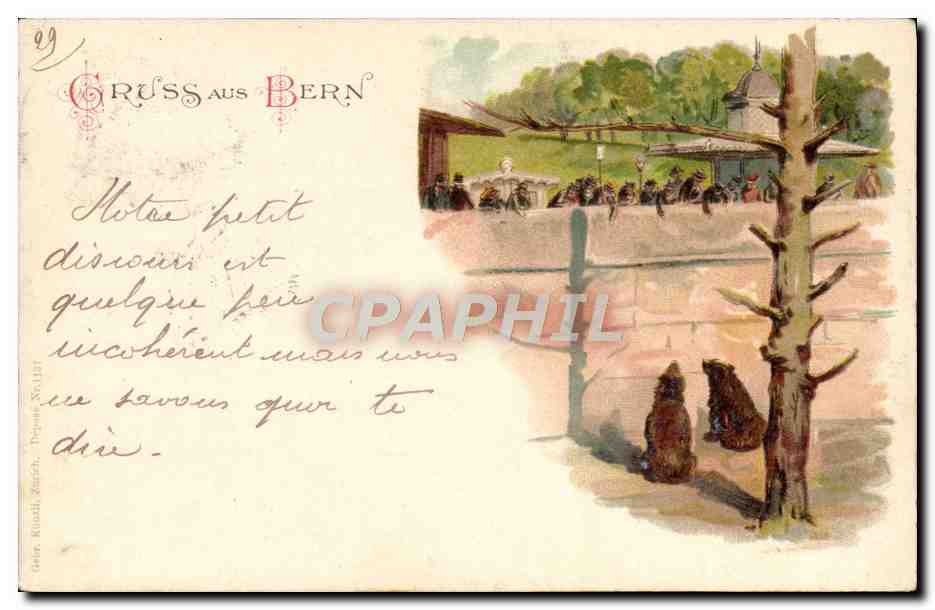 29)
GRUSS AUS BERN
Notre petit
discours est
quelque peu
incohérent mais nous
ne savons quoi te
dire -
CPAPHIL
Gebr. Künzli, Zürich. Déposé Nr. 1137